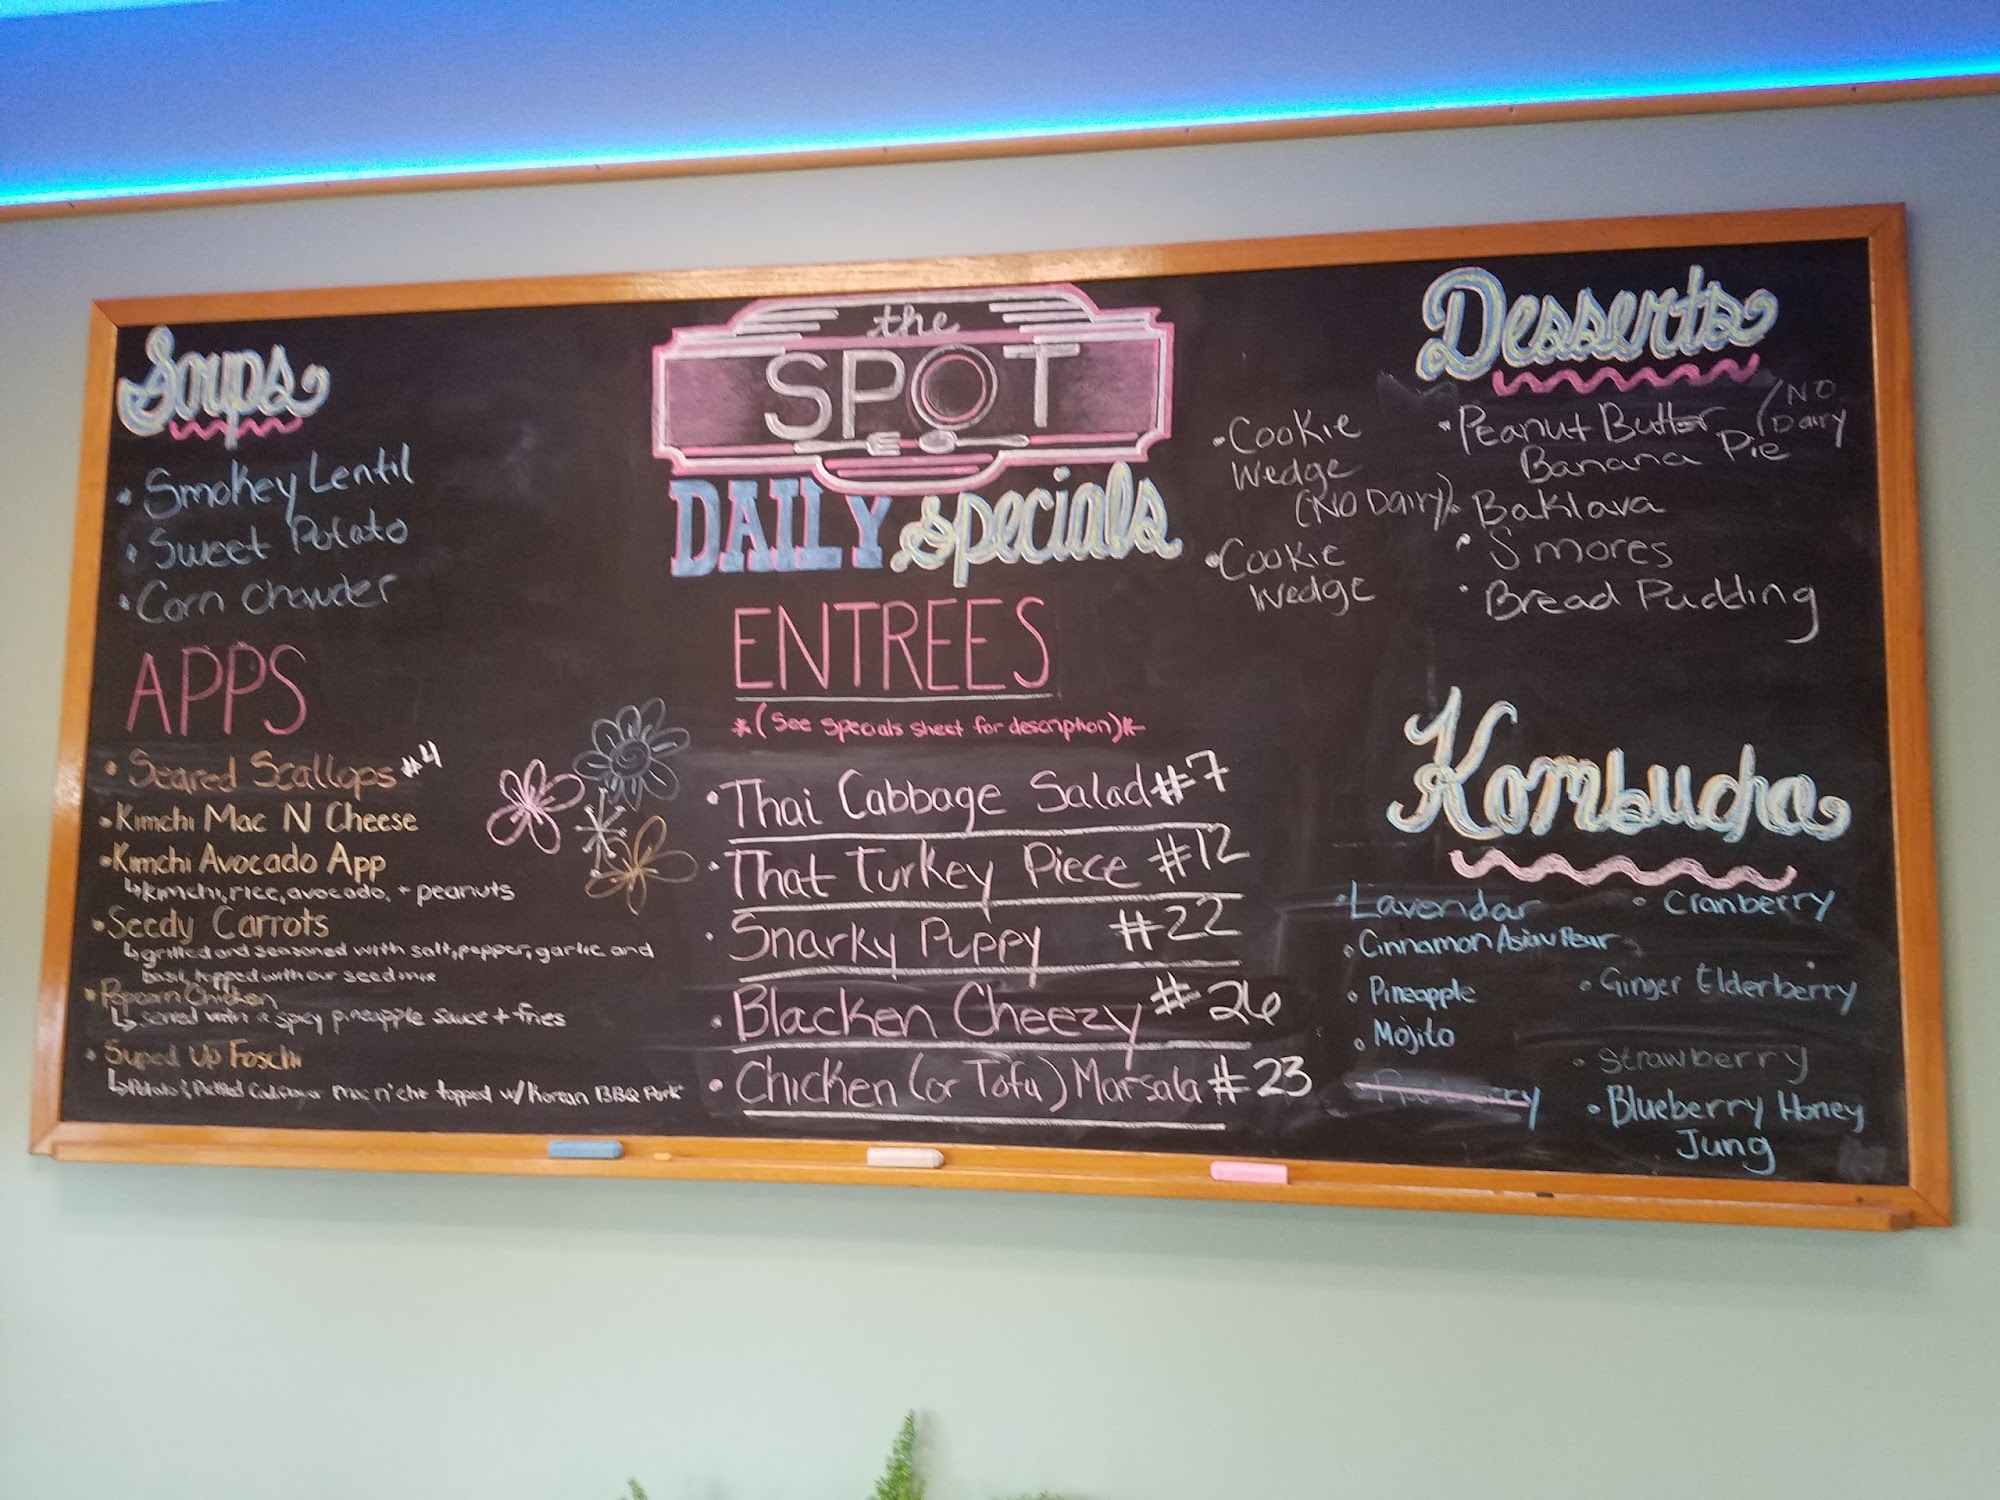 Soups
• Smokey Lentil
• Sweet Potato
• Corn chowder
APPS
• Seared Scallops #4
• Kimchi Mac N Cheese
• Kimchi Avocado App
↳ kimchi, rice, avocado, + peanuts
• Seedy Carrots
↳ grilled and seasoned with salt, pepper, garlic and
basil, topped with our seed mix
• Popcorn Chicken
↳ served with a spicy pineapple sauce + fries
• Suped Up Foschi
↳ Potato, Pickled mac n' che topped w/ Korean BBQ Pork
the
SPOT
DAILY specials
ENTREES
*(See specials sheet for description)*
• Thai Cabbage Salad #7
• That Turkey Piece #12
• Snarky Puppy #22
• Blacken Cheezy #26
• Chicken (or Tofu) Marsala #23
Desserts
• Cookie
Wedge
(No Dairy)
• Cookie
Wedge
• Peanut Butter
Banana Pie
(NO
Dairy
• Baklava
• S'mores
• Bread Pudding
Kombucha
• Lavendar
• Cinnamon Asian Pear
• Pineapple
• Mojito
• Cranberry
• Ginger Elderberry
• Strawberry
• Blueberry Honey
Jung